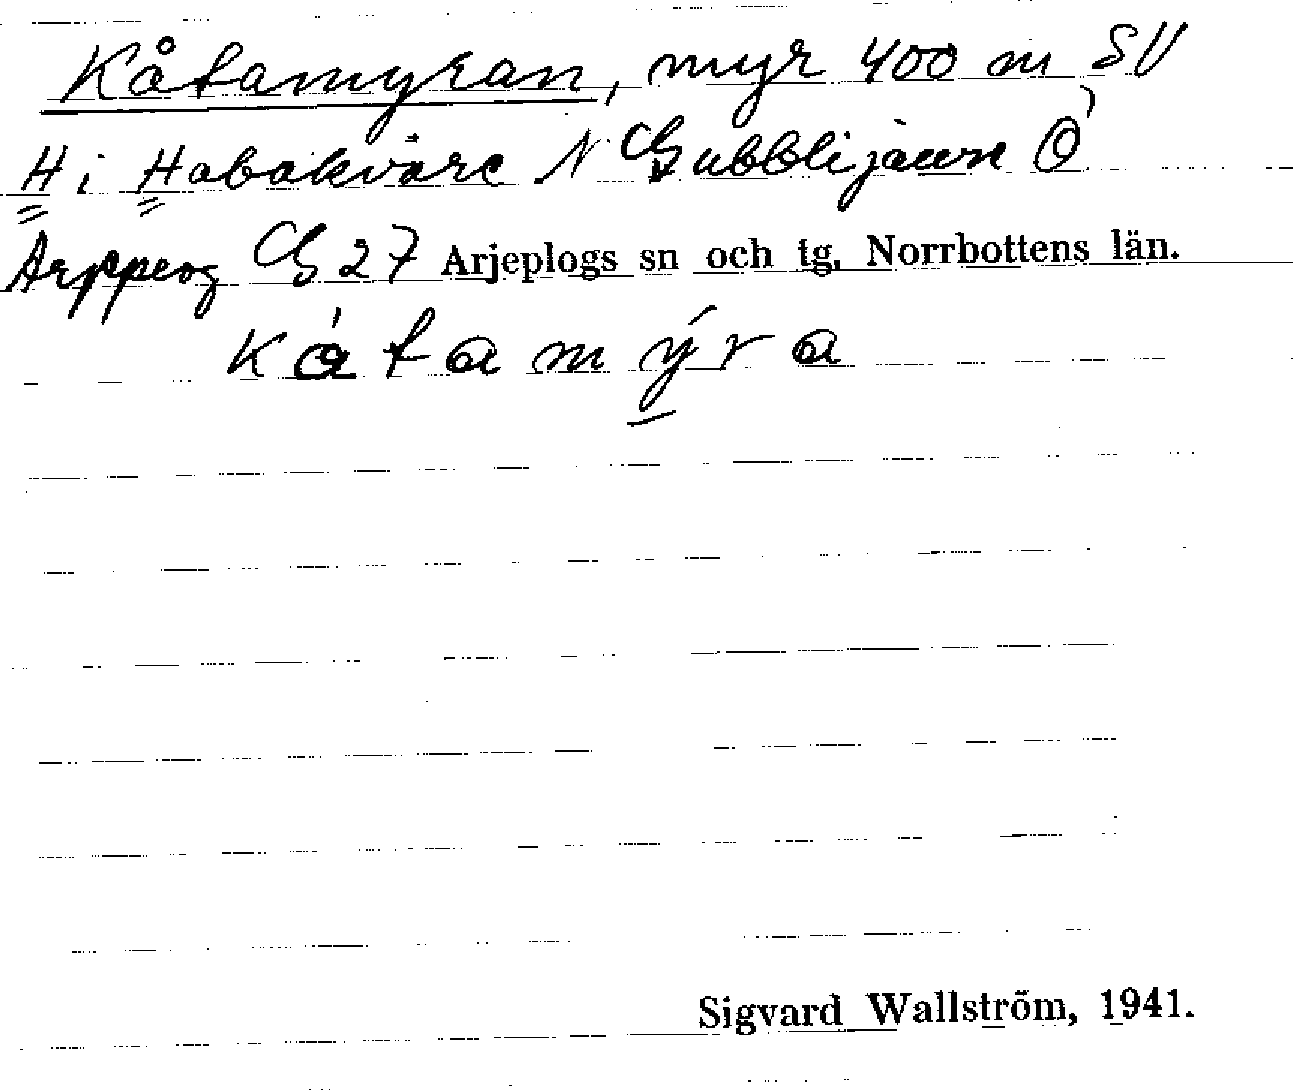 Kåtamyran, myr 400 m SV
H i Habakvare N Gubblijaure Ö
G 27 Arjeplogs sn och tg. Norrbottens län.
kátamýra
Sigvard Wallström, 1941.